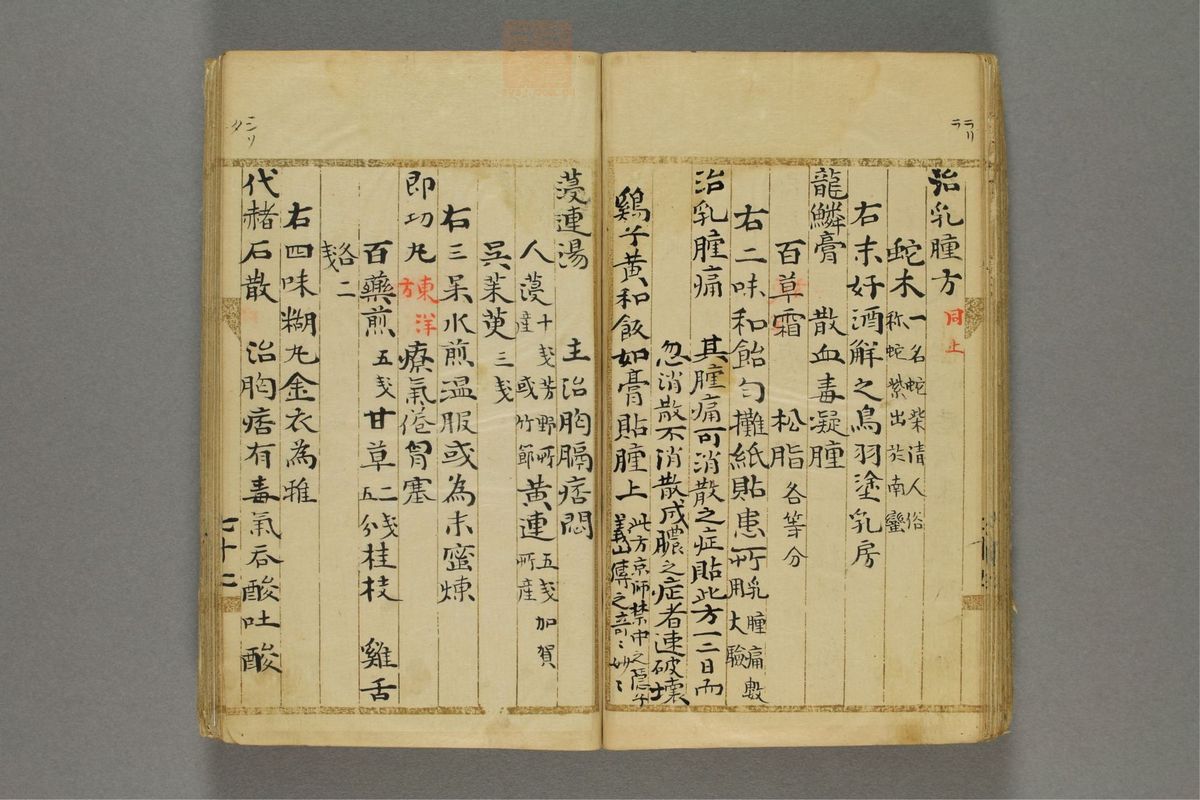 ラリ
ラ
治乳腫方 同上
蛇木 一名蛇柴清人俗
称蛇紫出於南蠻
右末好酒解之鳥羽塗乳房
龍鱗膏 散血毒凝腫
百草霜 松脂 各等分
右二味和飴勻攤紙貼患所 乳腫痛數
用大驗
治乳腫痛 其腫痛可消散之症貼此方一二日而
忽消散不消散成膿之症者速破壊
鷄子黄和飯如膏貼腫上 此方京師禁中之隠
義山傳之
葠連湯 主治胸膈痞悶
人葠 十戔芳野所
産或竹節 黄連 五戔加賀
所産
呉茱萸 三戔
右三味水煎温服或為末蜜煉
即功丸 東洋方 療氣倦胃塞
百藥煎 五戔 甘草 二戔
五分 桂枝 雞舌
二戔
右四味糊丸金衣為雅
代赭石散 治胸痞有毒氣吞酸吐酸
七十二